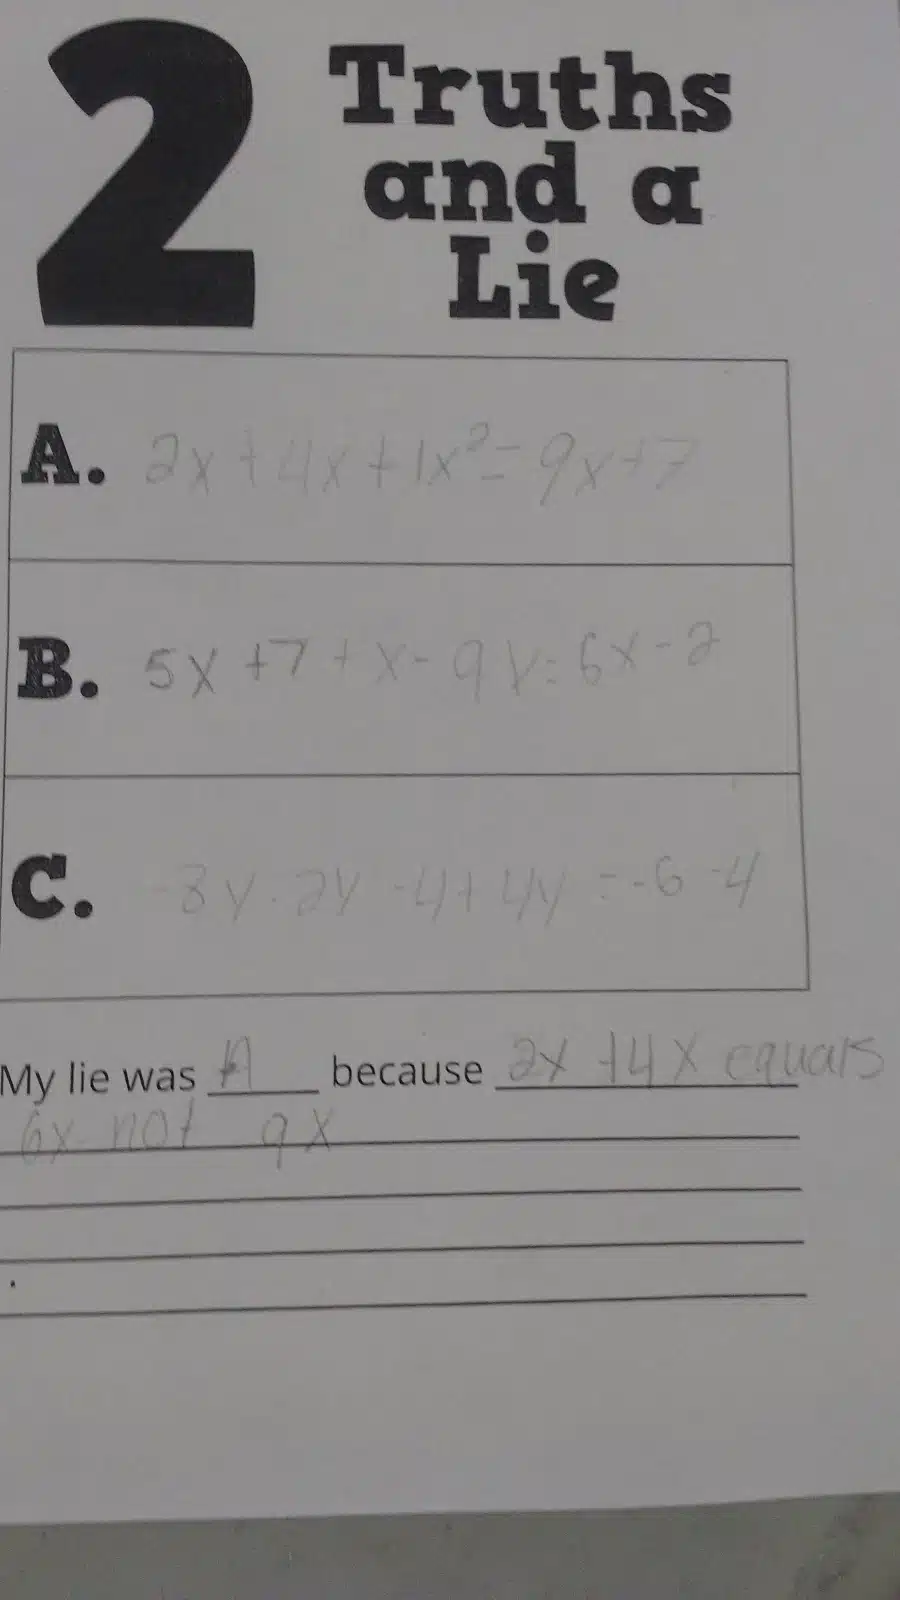 2 Truths
and a
Lie
A. 2x + 4x + 1x² = 9x + 7
B. 5x + 7 + x - 9 y = 6x - 2
C. -3y - 2y - 4 + 4y = -6 - 4
My lie was A because 2x + 4x equals
6x not 9x